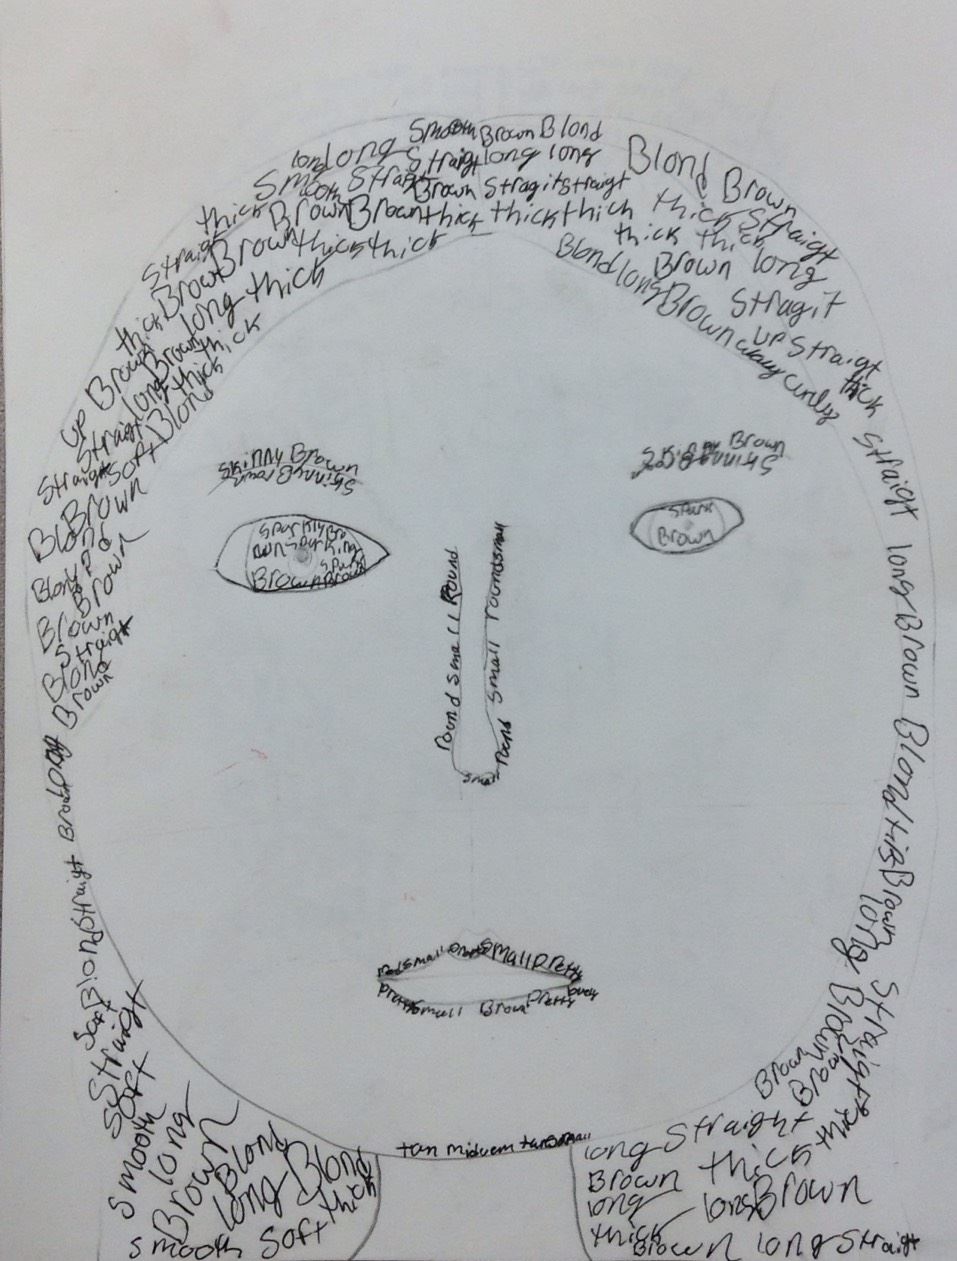 Smooth Brown Blond
long long Straigt long long
Smooth Straigt Brown Stragit Straigt
Blond Brown
thick Brown Brown thick thick thick thick Straigt
Straigt Brown thick thick
thick thick
Brown long
Brown long thick
Blond long Brown
Stragit
thick
up Straigt
curly
thick
up Brown Brown thick
Straigt long thick
Straight soft Blond
Straigt
Brown
Blond
Brown
Brown
Straight
Blond
Brown
Skinny Brown
Skinny Brown
Brown
Sparkly Bro
wn
Brown Brown
Brown
Round small Round
small round small
Small
long Brown
Blond
Brown
long
Straight
Straigt
Blond
Soft
small small Pretty
Pretty small Brown Pretty
Straight
Soft
smooth
long
Brown
Blond
long Blond
thick
smooth Soft
tan
Brown
Brown
Brown
long Straight
Brown thick
long long Brown
thick
Brown long Straigt